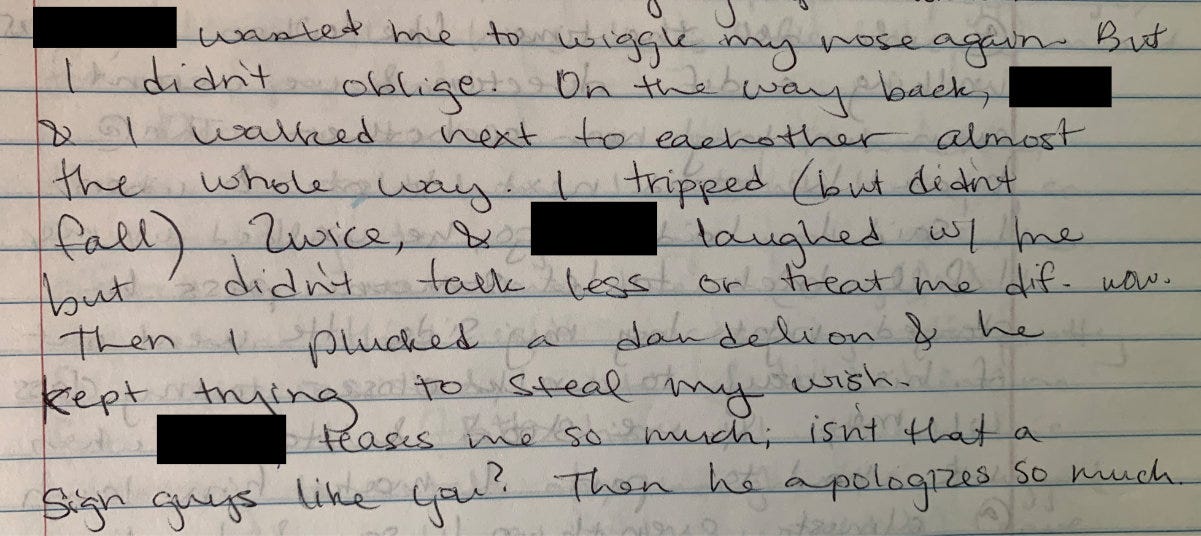 wanted me to wiggle my nose again. But
I didn't oblige. On the way back,
& I walked next to eachother almost
the whole way. I tripped (but didn't
fall) twice, & laughed w/ me
but didn't talk less or treat me dif. now.
Then I plucked a dandelion & he
kept trying to steal my wish.
teases me so much; isn't that a
sign guys like you? Then he apologizes so much.